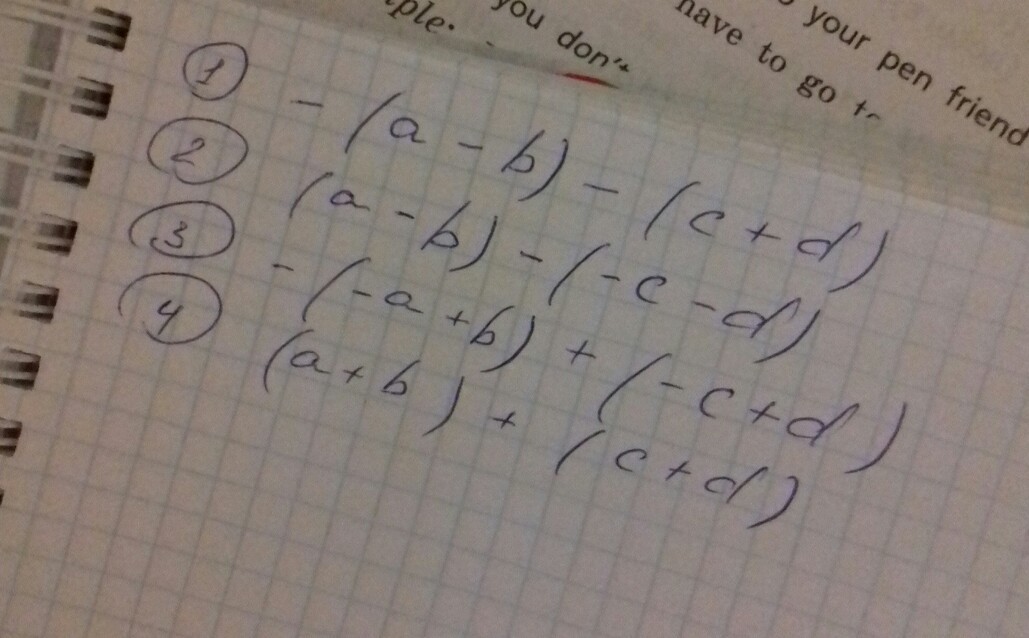 your pen friend
have to go
you don't
① - (a - b) - (c + d)
② (a - b) - (- c - d)
③ - (- a + b) + (- c + d)
④ (a + b) + (c + d)